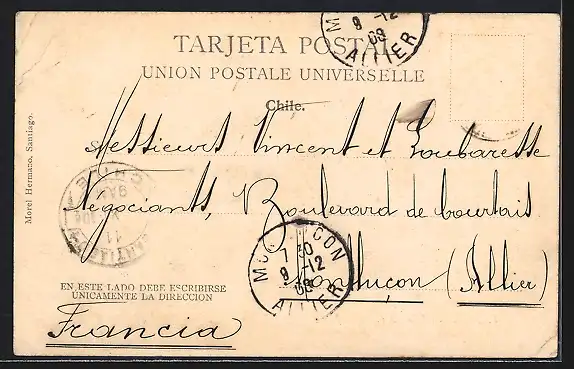 TARJETA POSTAL
UNION POSTALE UNIVERSELLE
Chile.
Messieurs Vincent et Loubaresse
Négociants, Boulevard de Courtais
Montluçon (Allier)
EN ESTE LADO DEBE ESCRIBIRSE
UNICAMENTE LA DIRECCION
Francia
Morel Hermano, Santiago.
9 -12
ALLIER
CHILE
11
CON
7 30
9 -12
ALLIER